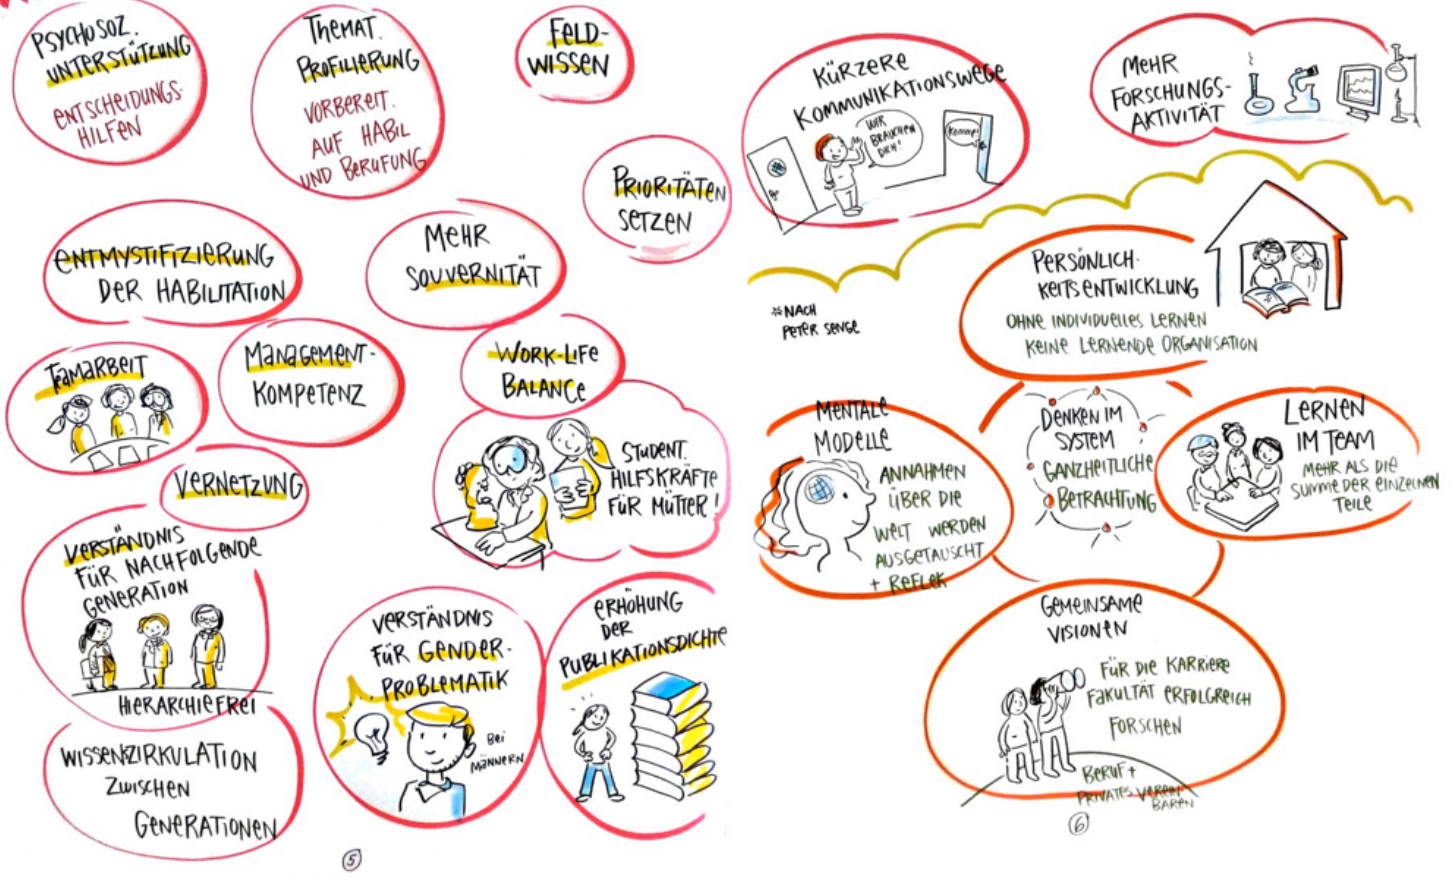 PSYCHOSOZ.
UNTERSTÜTZUNG
ENTSCHEIDUNGS-
HILFEN
THEMAT.
PROFILIERUNG
VORBEREIT.
AUF HABIL
UND BERUFUNG
FELD-
WISSEN
PRIORITÄTEN
SETZEN
ENTMYSTIFIZIERUNG
DER HABILITATION
MEHR
SOUVERNITÄT
TEAMARBEIT
MANAGEMENT-
KOMPETENZ
WORK-LIFE
BALANCE
STUDENT.
HILFSKRÄFTE
FÜR MÜTTER!
VERNETZUNG
VERSTÄNDNIS
FÜR NACHFOLGENDE
GENERATION
HIERARCHIEFREI
WISSENZIRKULATION
ZWISCHEN
GENERATIONEN
VERSTÄNDNIS
FÜR GENDER-
PROBLEMATIK
BEI
MÄNNERN
ERHÖHUNG
DER
PUBLIKATIONSDICHTE
5
KÜRZERE
KOMMUNIKATIONSWEGE
WIR
BRAUCHEN
DICH!
KOMME!
MEHR
FORSCHUNGS-
AKTIVITÄT
*NACH
PETER SENGE
PERSÖNLICH-
KEITSENTWICKLUNG
OHNE INDIVIDUELLES LERNEN
KEINE LERNENDE ORGANISATION
MENTALE
MODELLE
ANNAHMEN
ÜBER DIE
WELT WERDEN
AUSGETAUSCHT
+ REFLEK
DENKEN IM
SYSTEM
GANZHEITLICHE
BETRACHTUNG
LERNEN
IM TEAM
MEHR ALS DIE
SUMME DER EINZELNEN
TEILE
GEMEINSAME
VISIONEN
FÜR DIE KARRIERE
FAKULTÄT ERFOLGREICH
FORSCHEN
BERUF +
PRIVATES VEREIN
BAREN
6